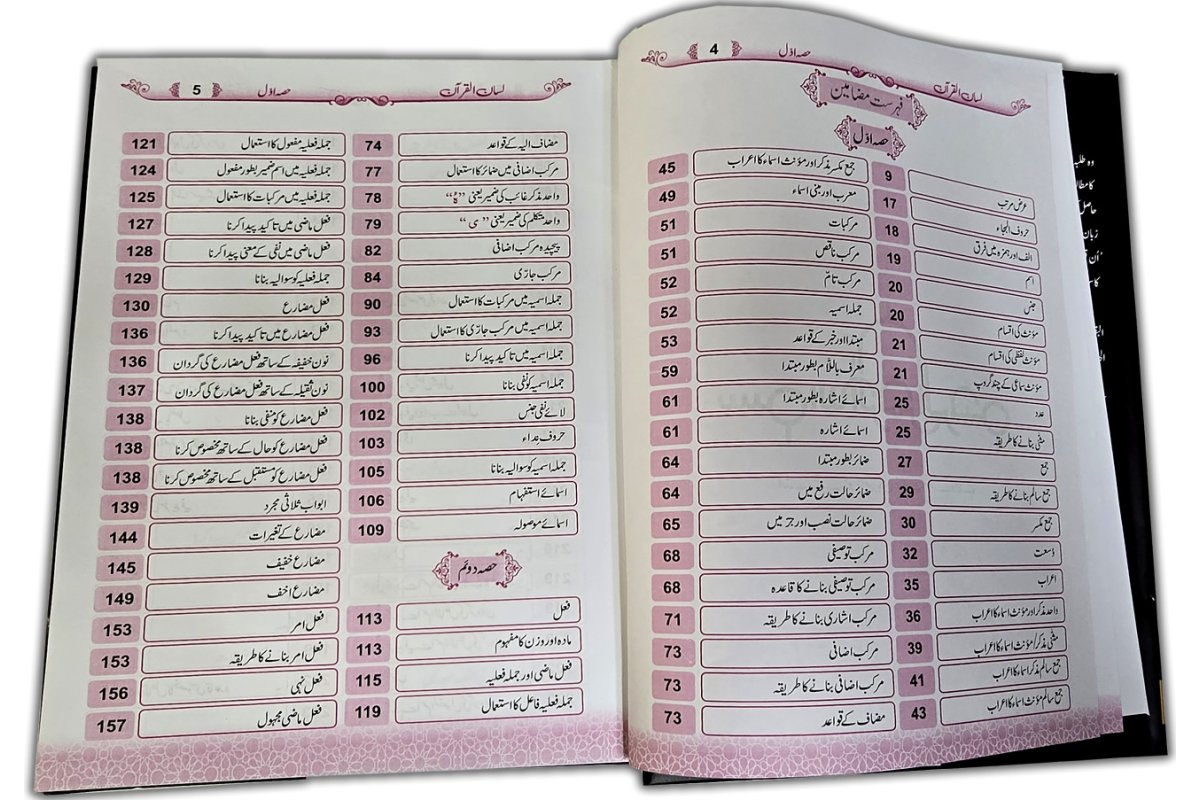 لسان القرآن حصہ اوّل 4
فہرست مضامین
حصہ اوّل
عرض مرتب 9
حروف الہجاء 17
الف اور ہمزہ میں فرق 18
اسم 19
جنس 20
مؤنث کی اقسام 20
مؤنث لفظی کی اقسام 21
مؤنث سماعی کے چند گروپ 21
عدد 25
مثنٰی بنانے کا طریقہ 25
جمع 27
جمع سالم بنانے کا طریقہ 29
جمع مکسر 30
وُسعت 32
اعراب 35
واحد مذکر اور مؤنث اسماء کا اعراب 36
مثنٰی مذکر/مؤنث اسماء کا اعراب 39
جمع سالم مذکر اسماء کا اعراب 41
جمع سالم مؤنث اسماء کا اعراب 43
جمع مکسر مذکر اور مؤنث اسماء کا اعراب 45
معرب اور مبنی اسماء 49
مرکبات 51
مرکب ناقص 51
مرکب تامّ 52
جملہ اسمیہ 52
مبتدا اور خبر کے قواعد 53
معرف باللّام بطور مبتدا 59
اسمائے اشارہ بطور مبتدا 61
اسمائے اشارہ 61
ضمائر بطور مبتدا 64
ضمائر حالت رفع میں 64
ضمائر حالت نصب اور جرّ میں 65
مرکب توصیفی 68
مرکب توصیفی بنانے کا قاعدہ 68
مرکب اشاری بنانے کا طریقہ 71
مرکب اضافی 73
مرکب اضافی بنانے کا طریقہ 73
مضاف کے قواعد 73
لسان القرآن حصہ اوّل 5
مضاف الیہ کے قواعد 74
مرکب اضافی میں ضمائر کا استعمال 77
واحد مذکر غائب کی ضمیر یعنی ”ہٗ“ 78
واحد متکلم کی ضمیر یعنی ”ی“ 79
پیچیدہ مرکب اضافی 82
مرکب جارّی 84
جملہ اسمیہ میں مرکبات کا استعمال 90
جملہ اسمیہ میں مرکب جارّی کا استعمال 93
جملہ اسمیہ میں تاکید پیدا کرنا 96
جملہ اسمیہ کو نفی بنانا 100
لائے نفی جنس 102
حروف نداء 103
جملہ اسمیہ کو سوالیہ بنانا 105
اسمائے استفہام 106
اسمائے موصولہ 109
حصہ دوئم
فعل 113
مادہ اور وزن کا مفہوم 113
فعل ماضی اور جملہ فعلیہ 115
جملہ فعلیہ فاعل کا استعمال 119
جملہ فعلیہ مفعول کا استعمال 121
جملہ فعلیہ میں اسم ضمیر بطور مفعول 124
جملہ فعلیہ میں مرکبات کا استعمال 125
فعل ماضی میں تاکید پیدا کرنا 127
فعل ماضی میں نفی کے معنی پیدا کرنا 128
جملہ فعلیہ کو سوالیہ بنانا 129
فعل مضارع 130
فعل مضارع میں تاکید پیدا کرنا 136
نون خفیفہ کے ساتھ فعل مضارع کی گردان 136
نون ثقیلہ کے ساتھ فعل مضارع کی گردان 137
فعل مضارع کو منفی بنانا 138
فعل مضارع کو حال کے ساتھ مخصوص کرنا 138
فعل مضارع کو مستقبل کے ساتھ مخصوص کرنا 138
ابواب ثلاثی مجرد 139
مضارع کے تغیرات 144
مضارع خفیف 145
مضارع اخف 149
فعل امر 153
فعل امر بنانے کا طریقہ 153
فعل نہی 156
فعل ماضی مجہول 157